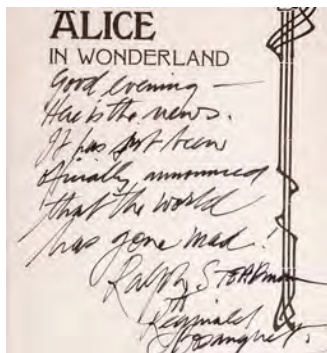 ALICE
IN WONDERLAND
Good evening —
Here is the news.
It has just been
officially announced
that the world
has gone mad!
Ralph STEADman
Reginald
Bosanquet.